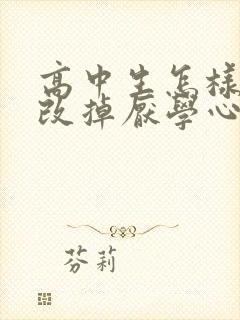 高中生怎樣
改掉厭學心
芬莉